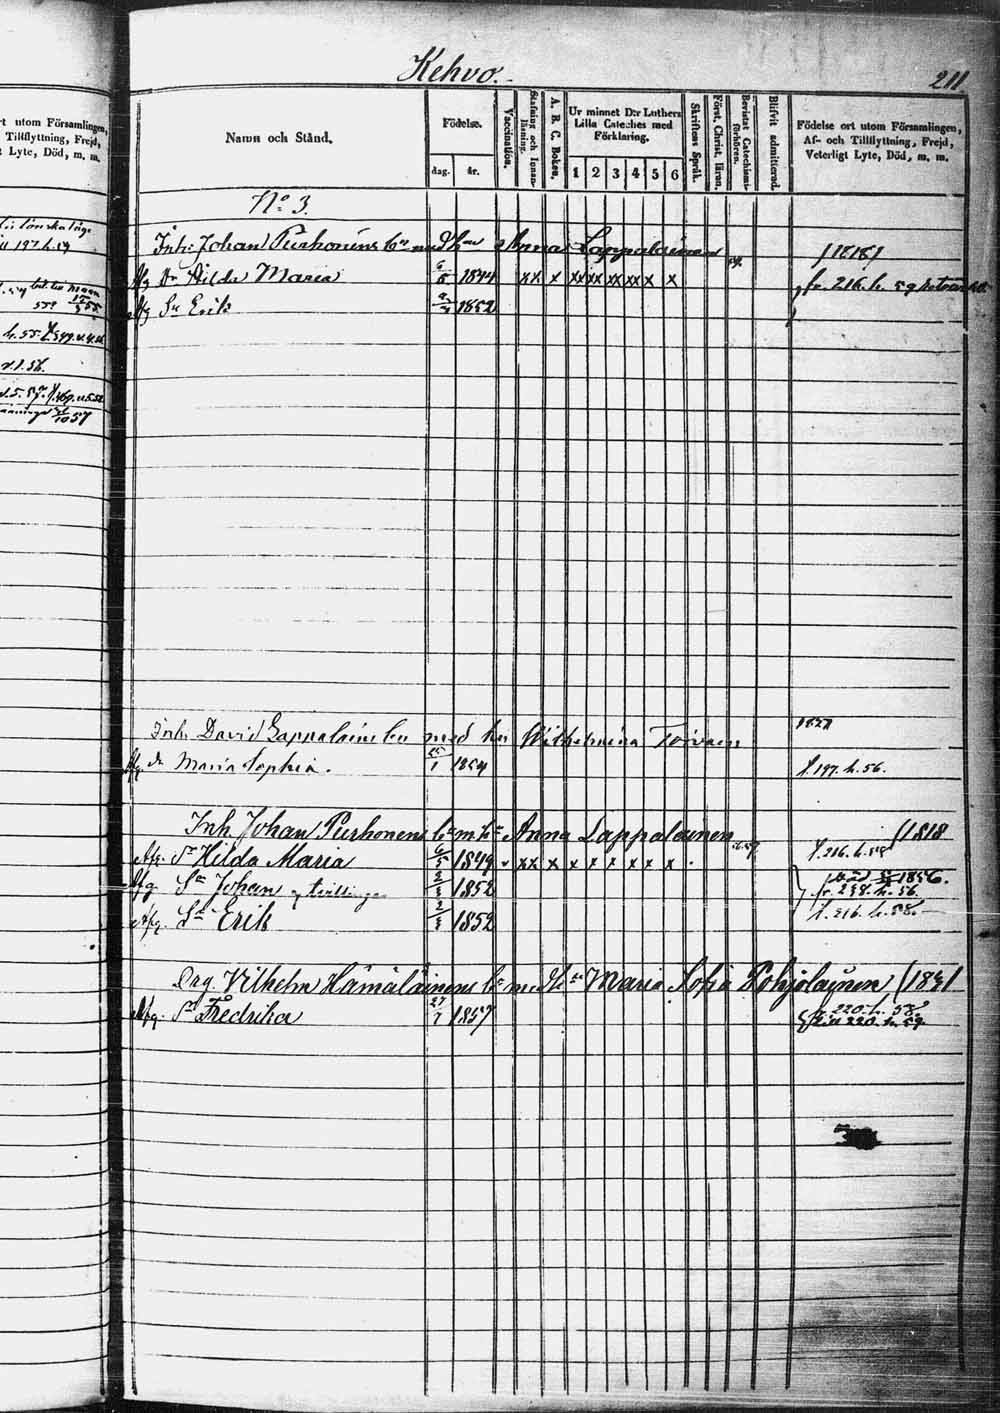 rt utom Församlingen,
Tillflyttning, Frejd,
t Lyte, Död, m. m.
197 h. 59
Kehvo.
211
Namn och Stånd.
Födelse.
dag.
år.
Vaccination.
Stafning och Innan-läsning.
A. B. C. Boken.
Ur minnet D:r Luthers
Lilla Cateches med
Förklaring.
1 2 3 4 5 6
Skriftens Språk.
Först. Christ. läran.
Bevistat Catechismi-förhören.
Blifvit admitterad.
Födelse ort utom Församlingen,
Af- och Tillflyttning, Frejd,
Veterligt Lyte, Död, m. m.
No 3.
Inh: Johan Purhonens bn med hu Anna Lappalainen /1818/
Afg Dr Hilda Maria 6/5 1844 xx x xx xx xx xx x x fr. 216. h. 59
Afg Sn Erik 2/3 1852
Inh. David Lappalains bn med hu Wilhelmina Toivain
Afg. Dr Maria Sophia. 1854 f. 197. h. 56.
Inh. Johan Purhonens bn m. hu Anna Lappalainen /1818
Afg. Dr Hilda Maria 6/5 1849 xx x x x x x x x f. 216. h. 58
Afg. Sn Johan tvillingar 2/3 1852 1856.
fr. 238. h. 56.
Afg. Sn Erik 2/3 1852 f. 216. h. 58.
Drg. Vilhelm Hämäläinens bn med hu Maria Sofia Pohjolainen /1831
Afg. Dr Fredrika 27/7 1857 fr. 220. h. 58.
220. h. 59.